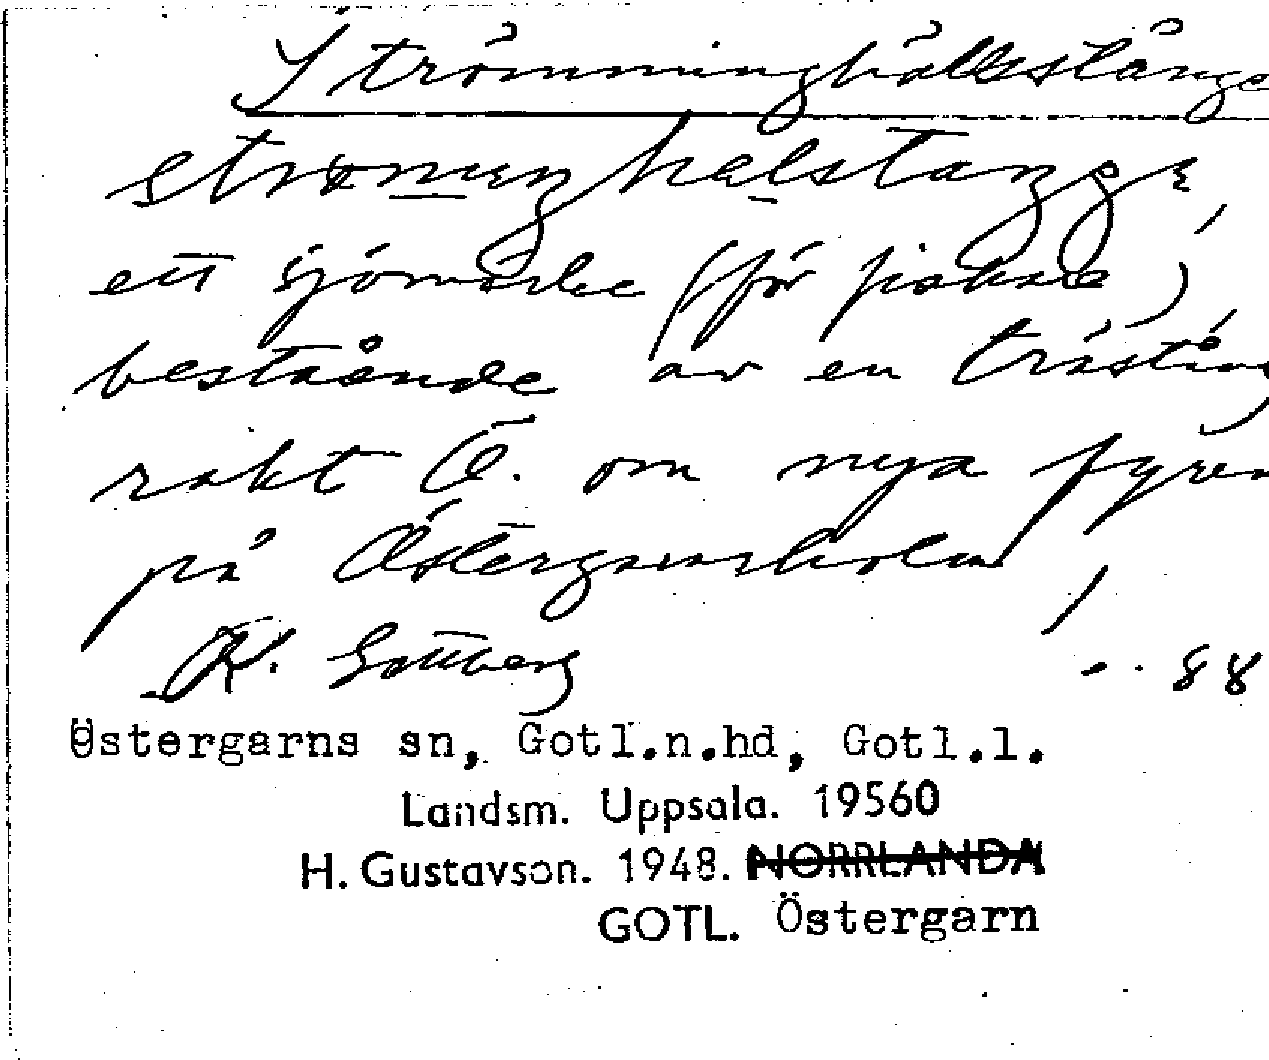 Strömminghällstånge
strömmiŋhalstaŋgɛ,
ett sjömärke (för fiskare),
bestående av en trästång
rakt Ö. om nya fyren
på Östergarnsholm
K. Gottberg 88
Östergarns sn, Gotl.n.hd, Gotl.l.
Landsm. Uppsala. 19560
H. Gustavson. 1948. NORRLANDA
GOTL. Östergarn